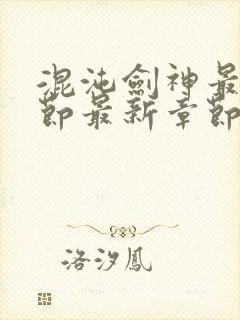 混沌劍神最
節最新章節
洛汐鳳